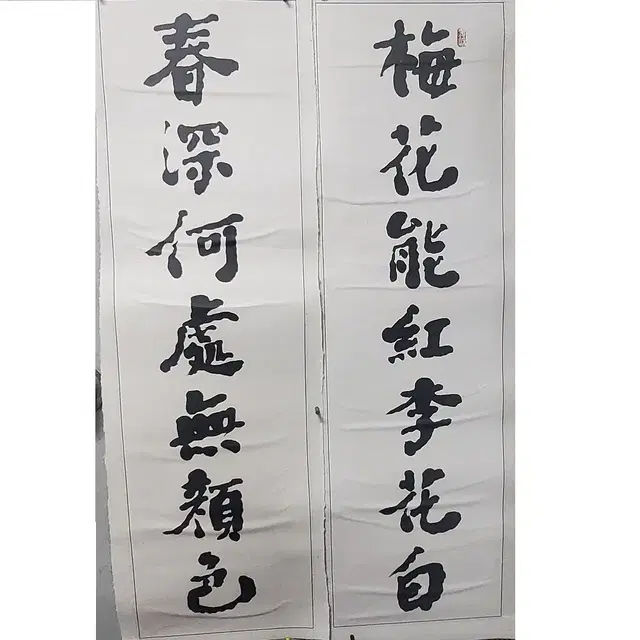 梅花能紅李花白
春深何處無顔色